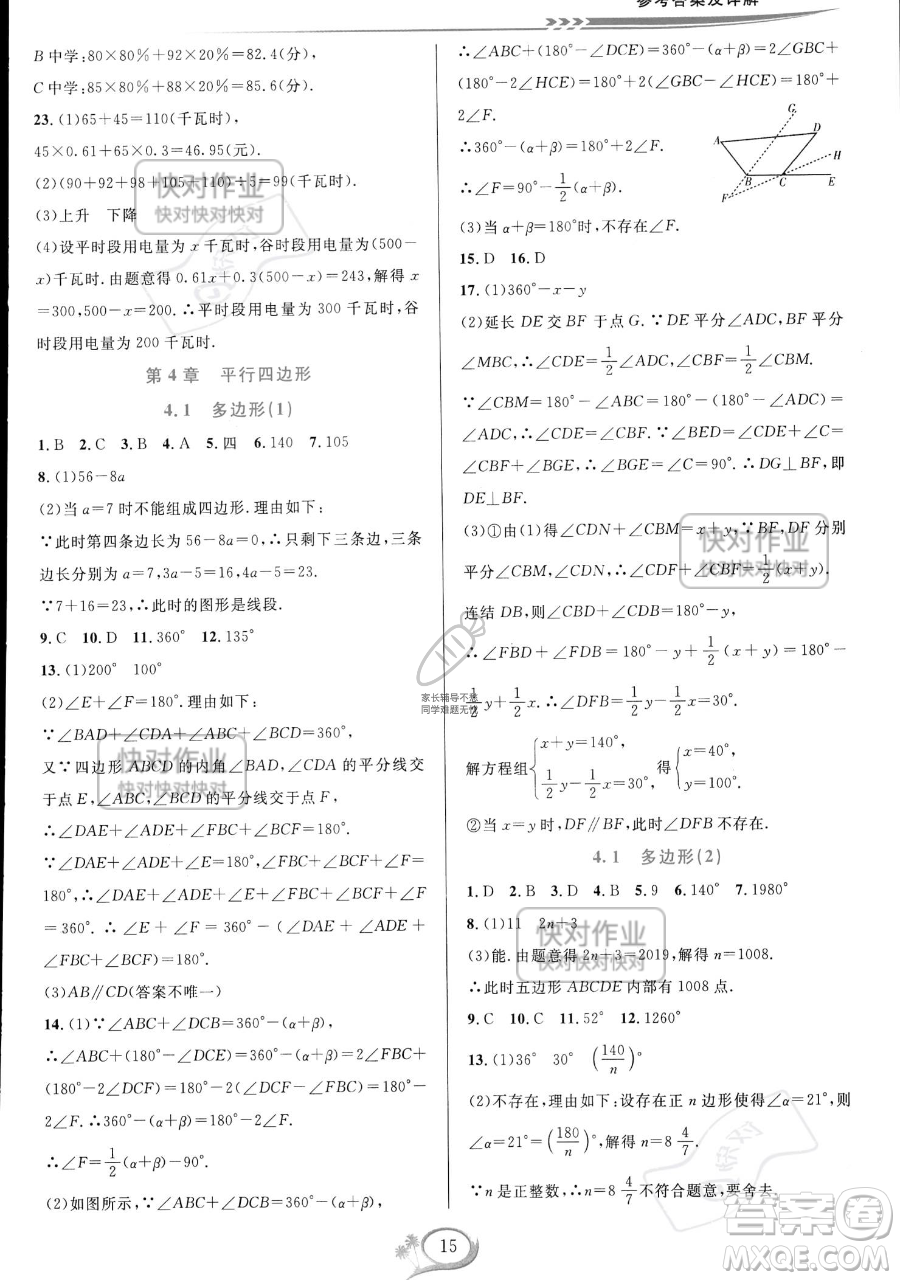 参考答案及详解
B 中学:80×80%+92×20%=82.4(分).
C 中学:85×80%+88×20%=85.6(分).
23.(1)65+45=110(千瓦时),
45×0.61+65×0.3=46.95(元).
(2)(90+92+98+105+110)÷5=99(千瓦时).
(3)上升 下降
(4)设平时段用电量为 x 千瓦时,谷时段用电量为(500-
x)千瓦时.由题意得 0.61x+0.3(500-x)=243,解得 x
=300,500-x=200.∴平时段用电量为 300 千瓦时,谷
时段用电量为 200 千瓦时.
第 4 章 平行四边形
4.1 多边形(1)
1.B 2.C 3.B 4.A 5.四 6.140 7.105
8.(1)56-8a
(2)当 a=7 时不能组成四边形.理由如下:
∵此时第四条边长为 56-8a=0,∴只剩下三条边,三条
边长分别为 a=7,3a-5=16,3a+2=23.
∵7+16=23,∴此时的图形是线段.
9.C 10.D 11.360° 12.135°
13.(1)200° 100°
(2)∠E+∠F=180°.理由如下:
∵∠BAD+∠CDA+∠ABC+∠BCD=360°,
又∵四边形 ABCD 的内角∠BAD,∠CDA 的平分线交
于点 E,∠ABC,∠BCD 的平分线交于点 F,
∴∠DAE+∠ADE+∠FBC+∠BCF=180°.
∵∠DAE+∠ADE+∠E=180°,∠FBC+∠BCF+∠F
=180°,∴∠E+∠F=360°-(∠DAE+∠ADE+
∠FBC+∠BCF)=180°.
(3)AB∥CD(答案不唯一)
14.(1)∵∠ABC+∠DCB=360°-(α+β),
∴∠ABC+(180°-∠DCE)=360°-(α+β)=2∠FBC+
(180°-2∠DCF)=180°-2(∠DCF-∠FBC)=180°-
2∠F.∴360°-(α+β)=180°-2∠F.
∴∠F=1/2(α+β)-90°.
(2)如图所示,∵∠ABC+∠DCB=360°-(α+β),
∴∠ABC+(180°-∠DCE)=360°-(α+β)=2∠GBC+
(180°-2∠HCE)=180°+2(∠GBC-∠HCE)=180°+
2∠F.
∴360°-(α+β)=180°+2∠F.
∴∠F=90°-1/2(α+β).
G
A
D
H
B
C
E
F
(3)当 α+β=180°时,不存在∠F.
15.D 16.D
17.(1)360°-x-y
(2)延长 DE 交 BF 于点 G.∵DE 平分∠ADC,BF 平分
∠MBC,∴∠CDE=1/2∠ADC,∠CBF=1/2∠CBM.
∵∠CBM=180°-∠ABC=180°-(180°-∠ADC)=
∠ADC,∴∠CDE=∠CBF.∵∠BED=∠CDE+∠C=
∠CBF+∠BGE,∴∠BGE=∠C=90°.∴DG⊥BF,即
DE⊥BF.
(3)①由(1)得∠CDN+∠CBM=x+y.∵BF,DF 分别
平分∠CBM,∠CDN,∴∠CDF+∠CBF=1/2(x+y).
连结 DB,则∠CBD+∠CDB=180°-y,
∴∠FBD+∠FDB=180°-y+1/2(x+y)=180°-
1/2y+1/2x.∴∠DFB=1/2y-1/2x=30°.
解方程组{x+y=140°, 1/2y-1/2x=30°. 得{x=40°, y=100°.
②当 x=y 时,DF∥BF,此时∠DFB 不存在.
4.1 多边形(2)
1.D 2.B 3.B 4.B 5.9 6.140° 7.1980°
8.(1)11 2n+3
(3)能.由题意得 2n+3=2019,解得 n=1008.
∴此时五边形 ABCDE 内部有 1008 点.
9.C 10.C 11.52° 12.1260°
13.(1)36° 30° (140/n)°
(2)不存在,理由如下:设存在正 n 边形使得∠α=21°,则
∠α=21°=(180/n)°,解得 n=8 4/7.
∵n 是正整数,∴n=8 4/7 不符合题意,要舍去.
15
快对作业
快对快对快对
快对作业
快对快对快对
快对作业
快对快对快对
快对作业
快对快对快对
家长辅导不愁
同学难题无忧
答案圈
MXQE.COM